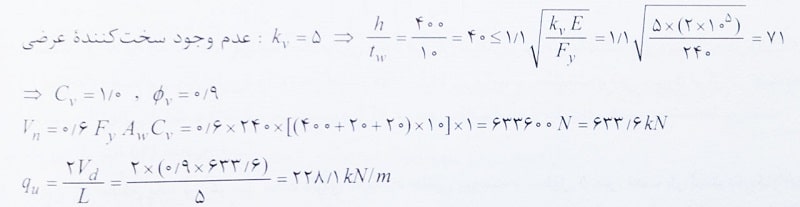 عدم وجود سخت‌کنندهٔ عرضی : k_v = ۵ ⇒ h/t_w = ۴۰۰/۱۰ = ۴۰ ≤ ۱/۱ √(k_v E / F_y) = ۱/۱ √(۵×(۲×۱۰^۵) / ۲۴۰) = ۷۱
⇒ C_v = ۱/۰ , ϕ_v = ۰/۹
V_n = ۰/۶ F_y A_w C_v = ۰/۶×۲۴۰×[(۴۰۰+۲۰+۲۰)×۱۰]×۱ = ۶۳۳۶۰۰ N = ۶۳۳/۶ kN
q_u = ۲V_d / L = ۲×(۰/۹×۶۳۳/۶) / ۵ = ۲۲۸/۱ kN/m